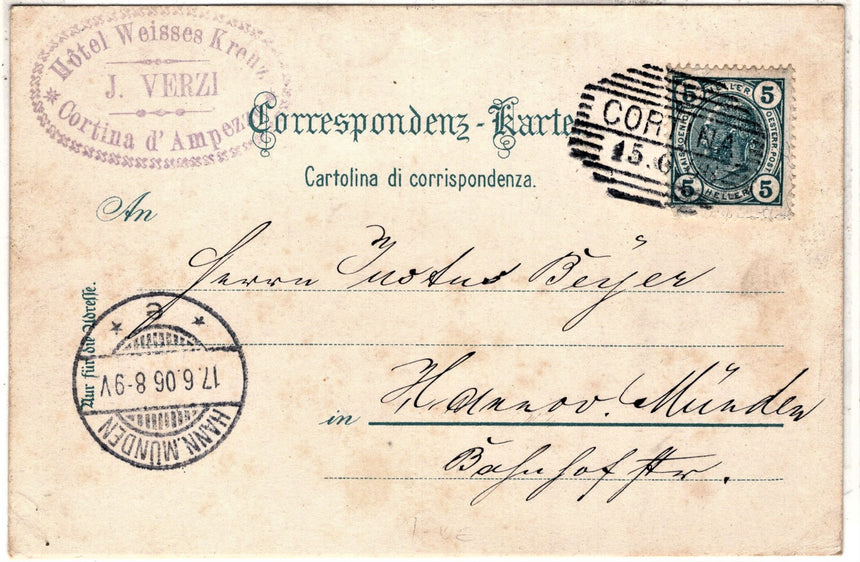 Hôtel Weisses Kreuz
J. VERZI
* Cortina d'Ampez
Correspondenz-Karte
Cartolina di corrispondenza.
5 HELLER 5
CORTINA
15.6
5 HELLER 5
An
Herrn Justus Beyer
Nur für die Adresse.
in Hannov. Münden
Bahnhofstr.
* a *
17.6.06 8-9V
HANN. MÜNDEN